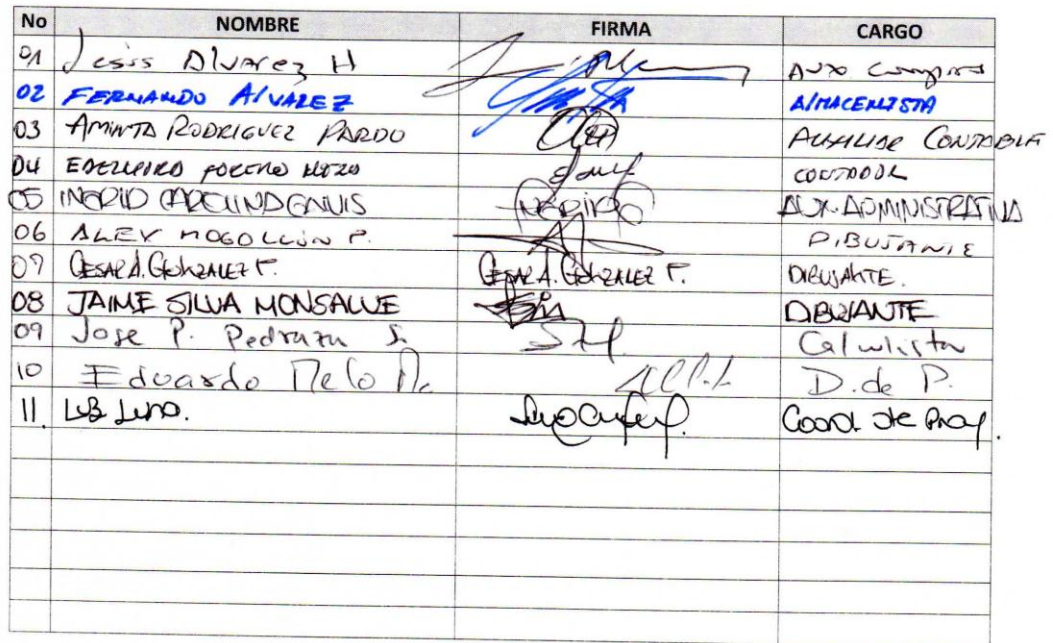 No NOMBRE FIRMA CARGO
01 Jesis Alvarez H Aux Compras
02 FERNANDO AlVAREZ AlMACENISTA
03 AMINTA RODRIGUEZ PARDO AUXILIAR CONTABLE
04 CONTADOR
05 INGRID CAROLINA INGRID AUX. ADMINISTRATIVA
06 ALEX MOGOLLON P. DIBUJANTE
07 CESAR A. GONZALEZ F. CESAR A. GONZALEZ F. DIBUJANTE.
08 JAIME SILVA MONSALVE DIBUJANTE
09 Jose P. Pedraza S. Calculista
10 Eduardo Melo M. D. de P.
11. Luz Luna. Coord. de Proy.